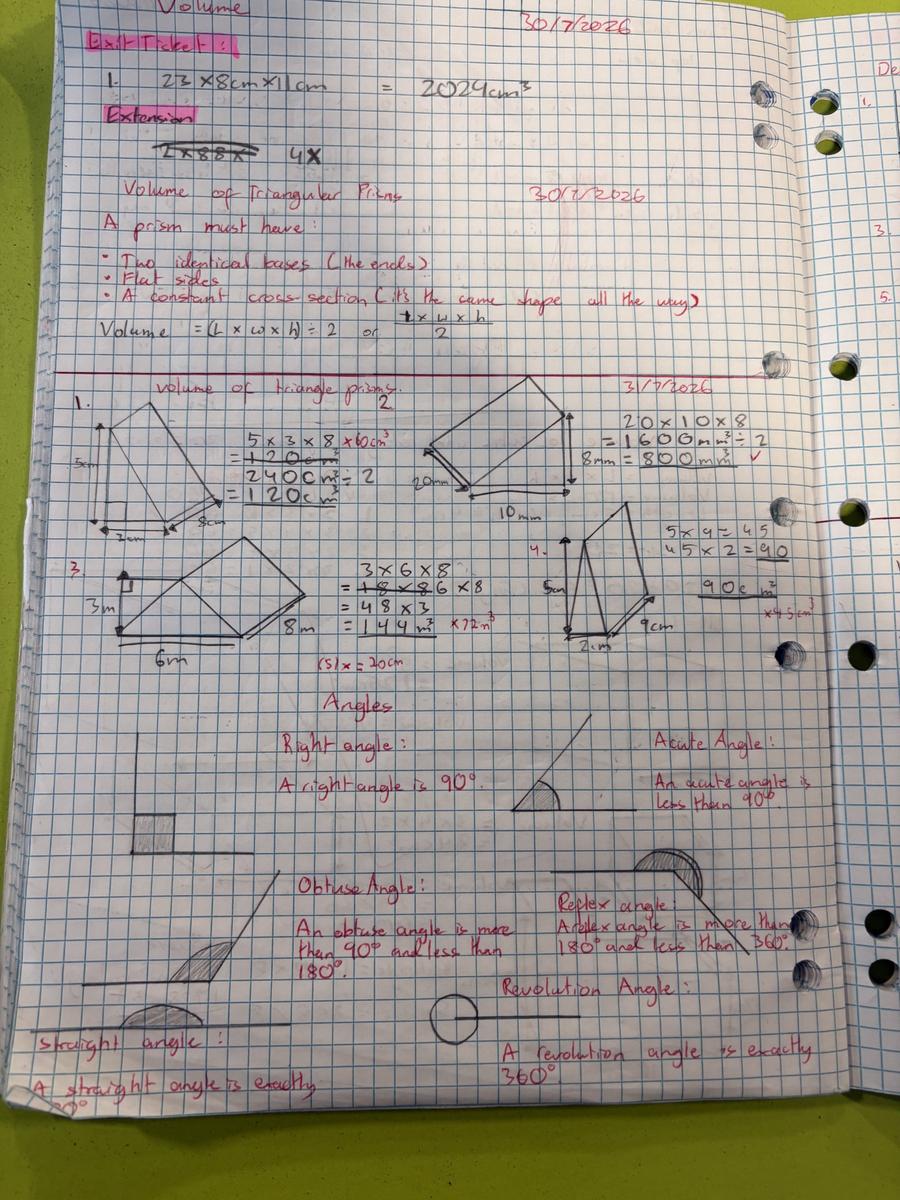 Volume
30/7/2026
Exit Ticket :
1. 23 × 8cm × 11cm = 2024cm³
Extension
2×88× 4×
Volume of Triangular Prisms 30/7/2026
A prism must have :
• Two identical bases (the ends)
• Flat sides
• A constant cross-section (it's the same shape all the way)
Volume = (L × w × h) ÷ 2 or L × w × h
2
volume of triangle prisms. 31/7/2026
1.
5cm
8cm
5 × 3 × 8 ×60cm³
= 120cm³
240cm³ ÷ 2
= 120cm³
2
20mm
10mm
8mm
20 × 10 × 8
= 1600mm³ ÷ 2
= 800mm³ ✓
3.
3m
6m
8m
3 × 6 × 8
= 18 × 8 6 × 8
= 48 × 3
= 144m³ ×72m³
4.
5cm
2cm
9cm
5 × 9 = 45
45 × 2 = 90
90cm³
×45cm³
(5) x = 20cm
Angles
Right angle :
A right angle is 90°.
Acute Angle :
An acute angle is
less than 90°
Obtuse Angle :
An obtuse angle is more
than 90° and less than
180°.
Reflex angle :
A reflex angle is more than
180° and less than 360°.
straight angle :
A straight angle is exactly
Revolution Angle :
A revolution angle is exactly
360°.
De
1.
3.
5.